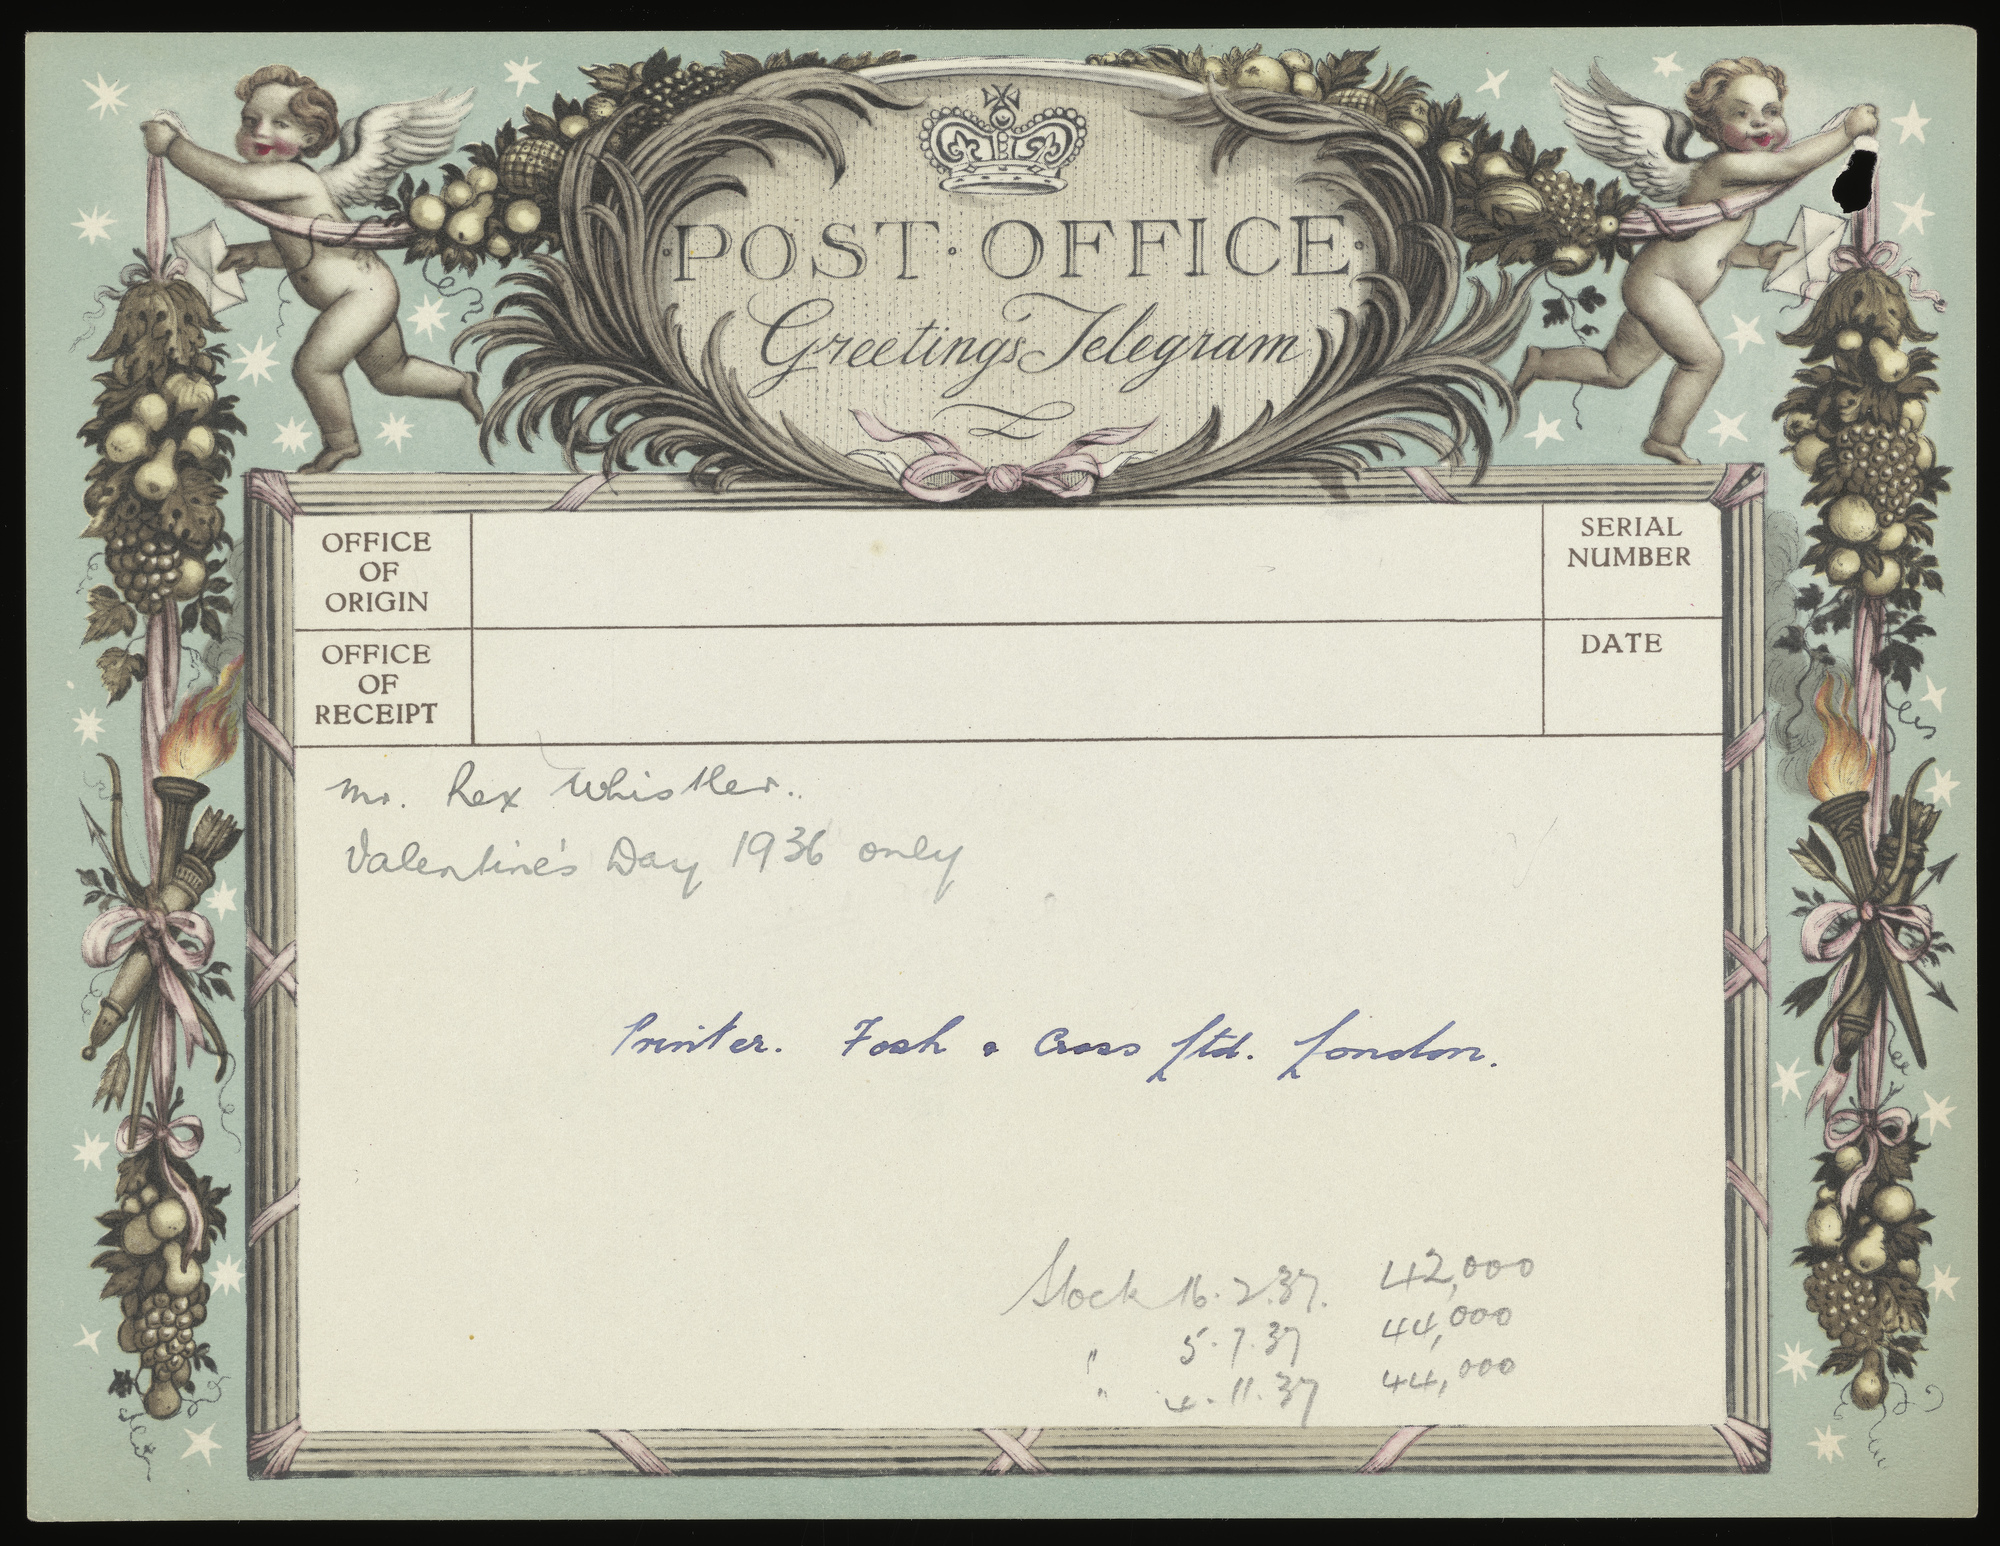 POST · OFFICE
Greetings Telegram
OFFICE
OF
ORIGIN
SERIAL
NUMBER
OFFICE
OF
RECEIPT
DATE
Mr. Rex Whistler.
Valentine's Day 1936 only
Printer. Fosh & Cross Ltd. London.
Stock 16.2.37. 42,000
" 5.7.37 44,000
" 4.11.37 44,000